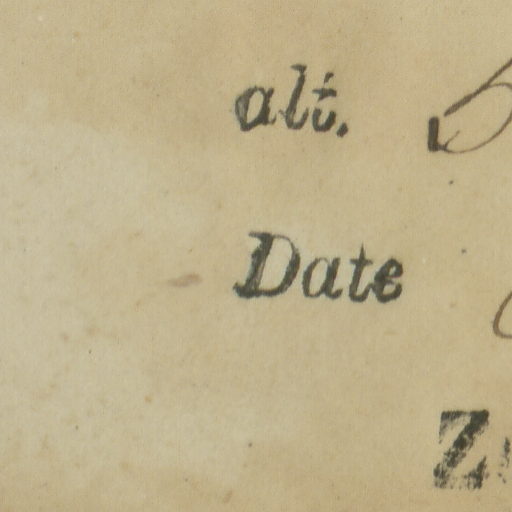 alt.
Date